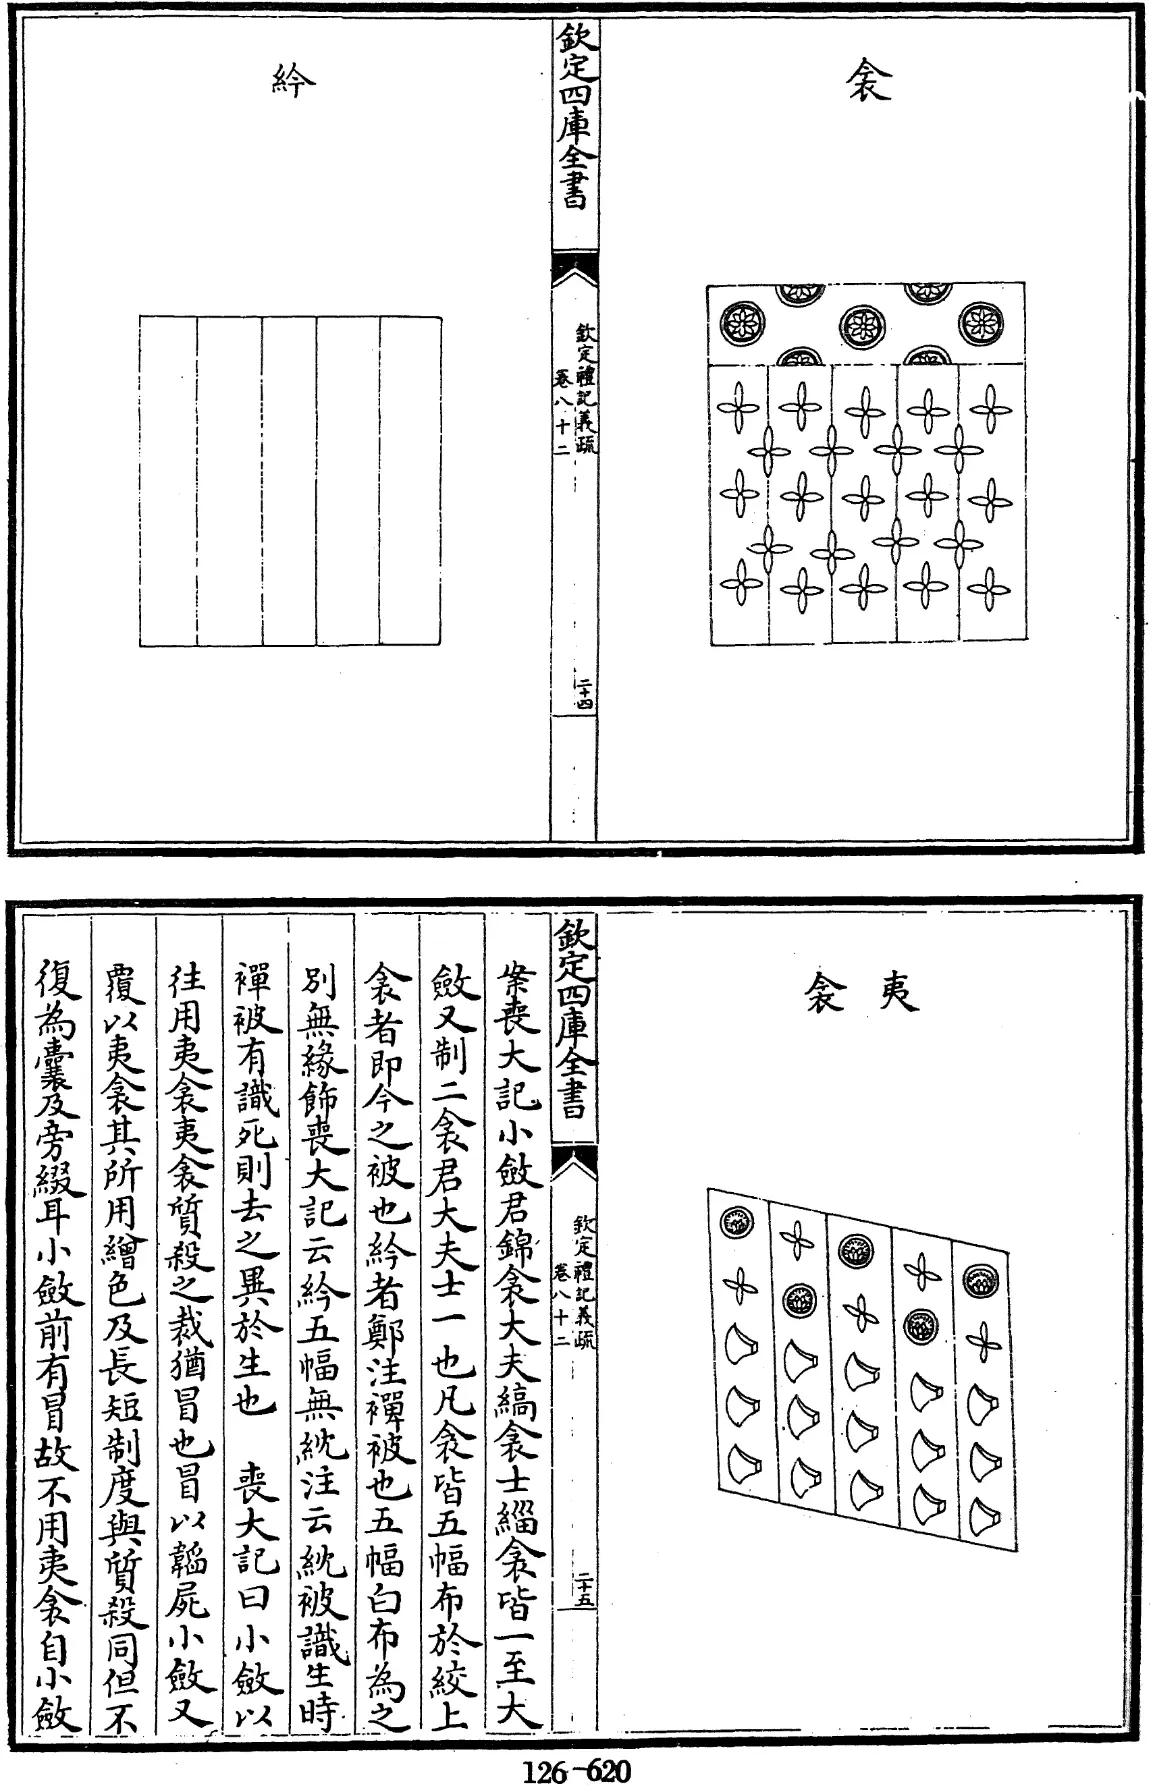 衾
欽定四庫全書
欽定禮記義疏
卷八十二
二十四
紟
夷衾
欽定四庫全書
欽定禮記義疏
卷八十二
二十五
案喪大記小斂君錦衾大夫縞衾士緇衾皆一至大
斂又制二衾君大夫士一也凡衾皆五幅布於絞上
衾者即今之被也紟者鄭注襌被也五幅白布為之
別無緣飾喪大記云紟五幅無紞注云紞被識生時
襌被有識死則去之異於生也　喪大記曰小斂以
徃用夷衾夷衾質殺之裁猶冒也冒以韜屍小斂又
覆以夷衾其所用繒色及長短制度與質殺同但不
復為囊及旁綴耳小斂前有冒故不用夷衾自小斂
126-620